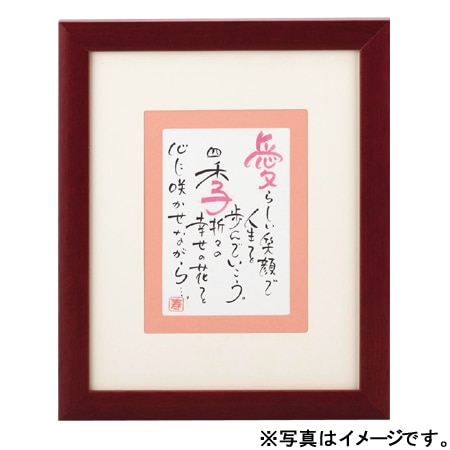 愛らしい笑顔で
人生を
歩んでいこう。
四季折々の
幸せの花を
心に咲かせながら…。
寿
※写真はイメージです。